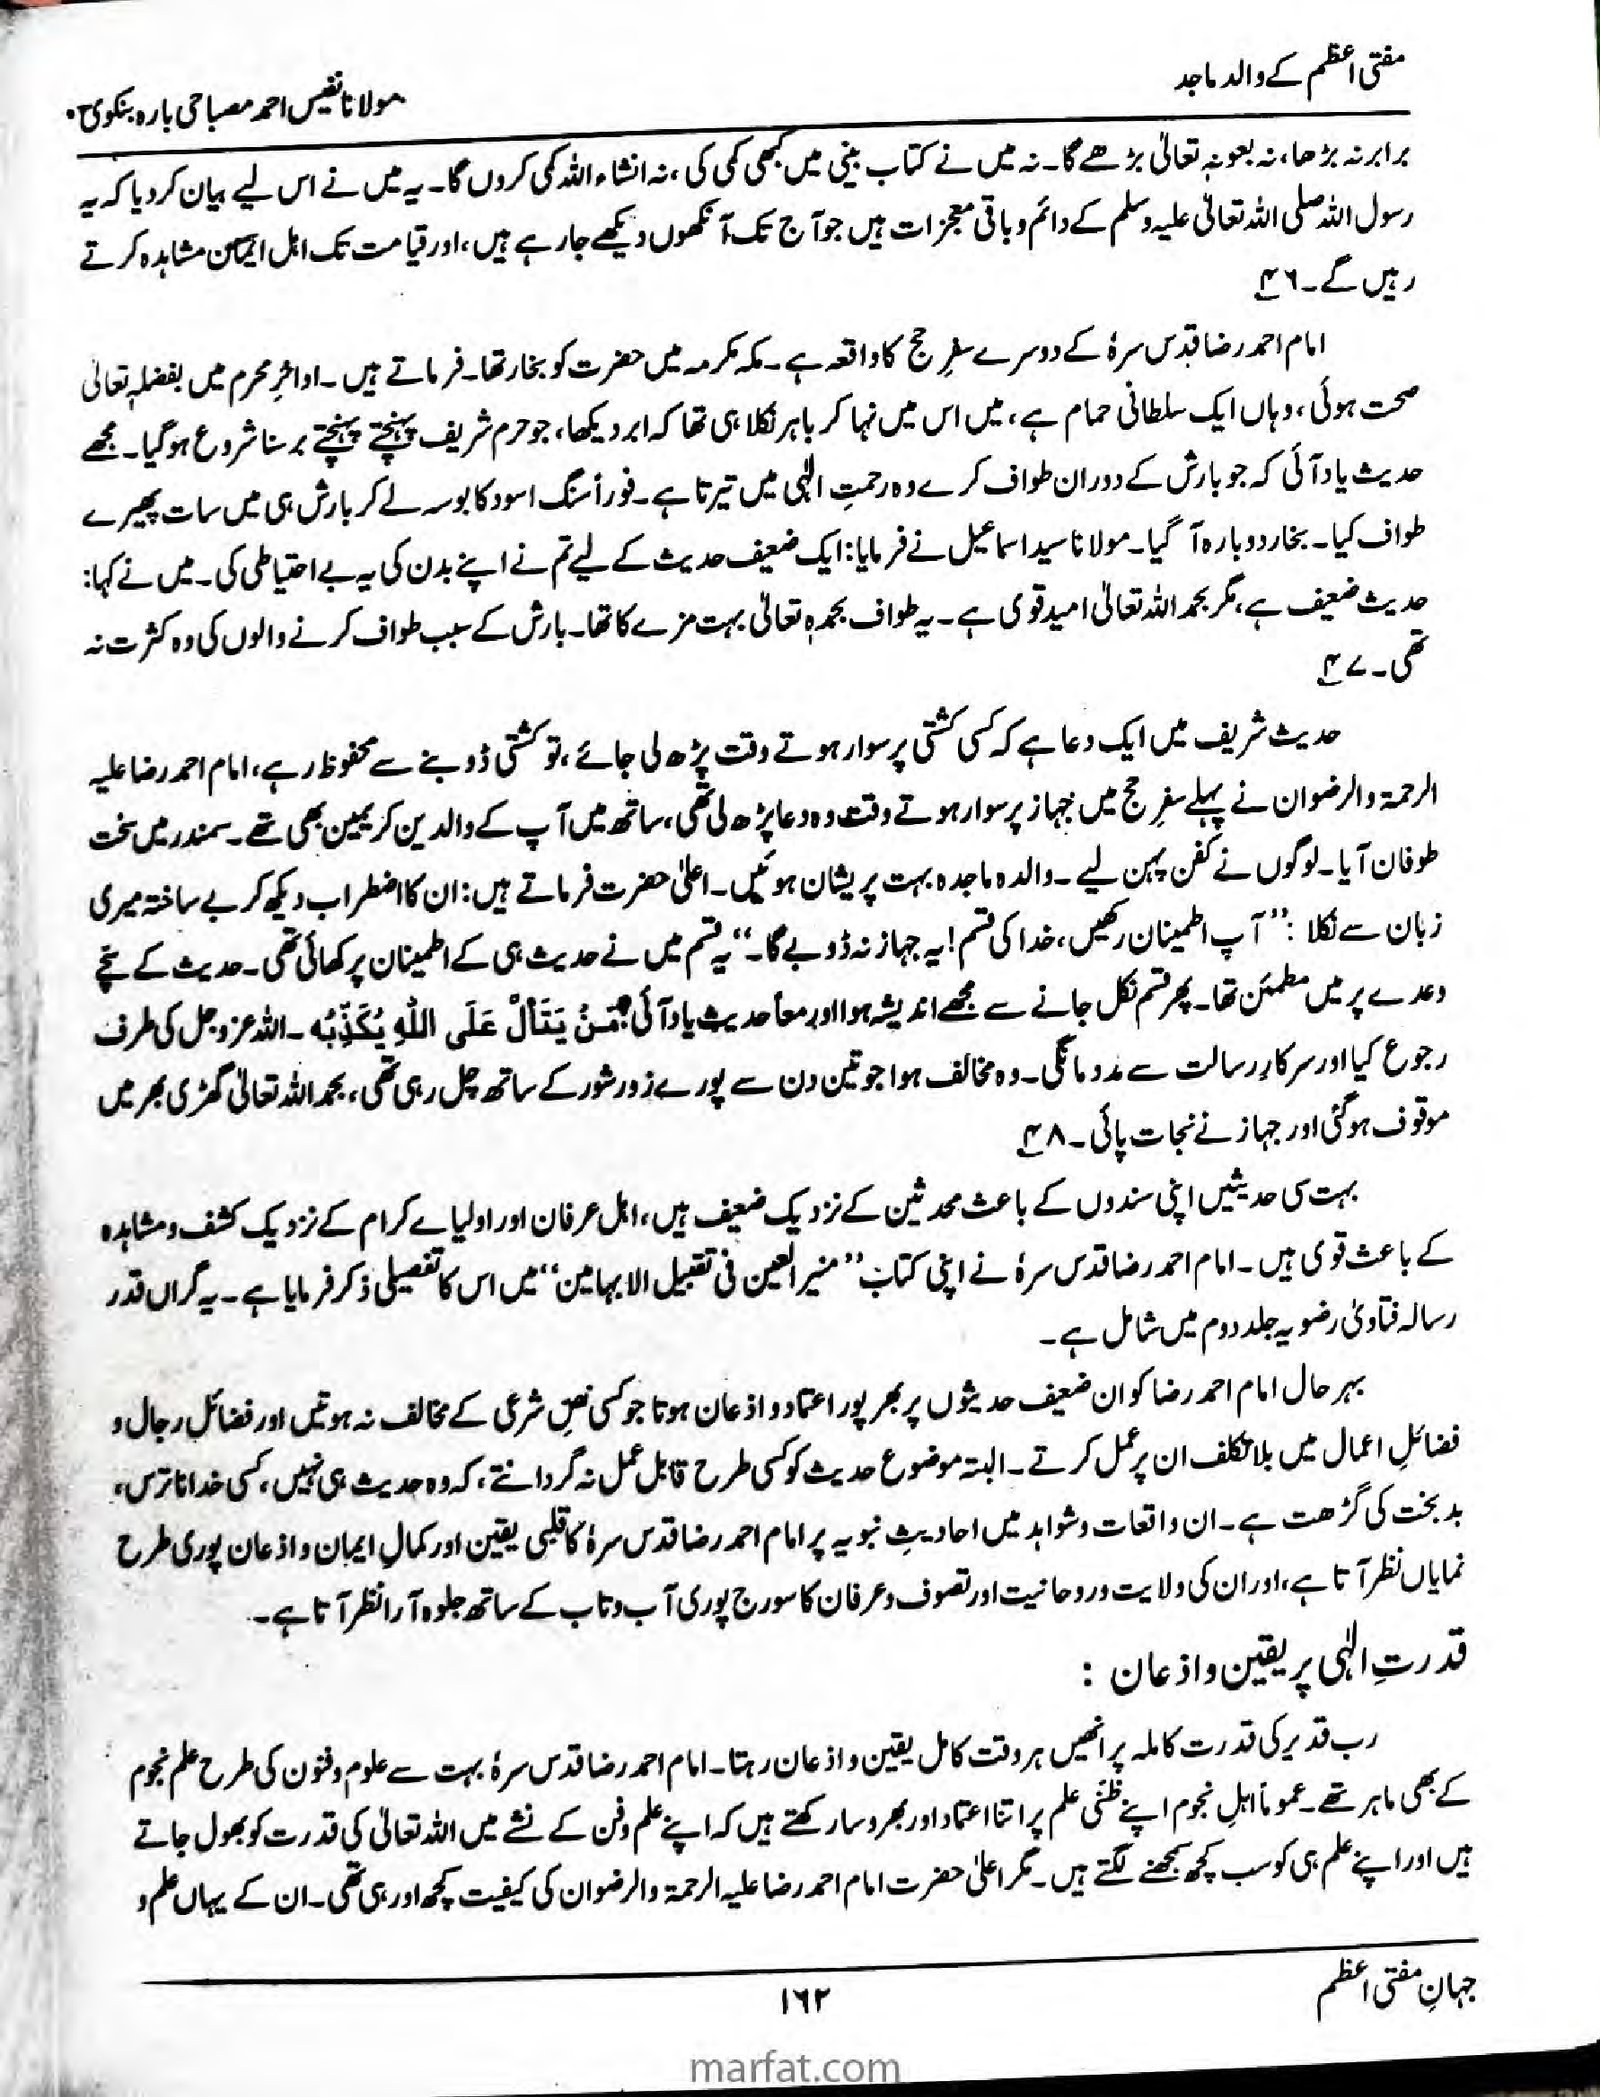 مفتی اعظم کے والد ماجد
مولانا نفیس احمد مصباحی بارہ بنکوی
برابر نہ بڑھا، نہ بعونہٖ تعالیٰ بڑھے گا۔ نہ میں نے کتاب بینی میں کبھی کمی کی، نہ انشاء اللہ کمی کروں گا۔ یہ میں نے اس لیے بیان کر دیا کہ یہ
رسول اللہ صلی اللہ تعالیٰ علیہ وسلم کے دائم و باقی معجزات ہیں جو آج تک آنکھوں دیکھے جا رہے ہیں، اور قیامت تک اہل ایمان مشاہدہ کرتے
رہیں گے۔ ۴۶
امام احمد رضا قدس سرہٗ کے دوسرے سفرِ حج کا واقعہ ہے۔ مکہ مکرمہ میں حضرت کو بخار تھا۔ فرماتے ہیں۔ اواخرِ محرم میں بفضلہٖ تعالیٰ
صحت ہوئی، وہاں ایک سلطانی حمام ہے، میں اس میں نہا کر باہر نکلا ہی تھا کہ ابر دیکھا، جو حرم شریف پہنچتے پہنچتے برسنا شروع ہوگیا۔ مجھے
حدیث یاد آئی کہ جو بارش کے دوران طواف کرے وہ رحمتِ الٰہی میں تیرتا ہے۔ فوراً سنگ اسود کا بوسہ لے کر بارش ہی میں سات پھیرے
طواف کیا۔ بخار دوبارہ آ گیا۔ مولانا سید اسماعیل نے فرمایا: ایک ضعیف حدیث کے لیے تم نے اپنے بدن کی یہ بے احتیاطی کی۔ میں نے کہا:
حدیث ضعیف ہے، مگر بحمد اللہ تعالیٰ امید قوی ہے۔ یہ طواف بحمدہٖ تعالیٰ بہت مزے کا تھا۔ بارش کے سبب طواف کرنے والوں کی وہ کثرت نہ
تھی۔ ۴۷
حدیث شریف میں ایک دعا ہے کہ کسی کشتی پر سوار ہوتے وقت پڑھ لی جائے، تو کشتی ڈوبنے سے محفوظ رہے، امام احمد رضا علیہ
الرحمۃ والرضوان نے پہلے سفرِ حج میں جہاز پر سوار ہوتے وقت وہ دعا پڑھ لی تھی، ساتھ میں آپ کے والدین کریمین بھی تھے۔ سمندر میں سخت
طوفان آیا۔ لوگوں نے کفن پہن لیے۔ والدہ ماجدہ بہت پریشان ہوئیں۔ اعلیٰ حضرت فرماتے ہیں: ان کا اضطراب دیکھ کر بے ساختہ میری
زبان سے نکلا: ”آپ اطمینان رکھیں، خدا کی قسم! یہ جہاز نہ ڈوبے گا۔“ یہ قسم میں نے حدیث ہی کے اطمینان پر کھائی تھی۔ حدیث کے سچے
وعدے پر میں مطمئن تھا۔ پھر قسم نکل جانے سے مجھے اندیشہ ہوا اور معاً حدیث یاد آئی: مَنْ یَتَألّ عَلَی اللّٰہِ یُکَذِّبْہ۔ اللہ عزوجل کی طرف
رجوع کیا اور سرکارِ رسالت سے مدد مانگی۔ وہ مخالف ہوا جو تین دن سے پورے زور شور کے ساتھ چل رہی تھی، بحمد اللہ تعالیٰ گھڑی بھر میں
موقوف ہوگئی اور جہاز نے نجات پائی۔ ۴۸
بہت سی حدیثیں اپنی سندوں کے باعث محدثین کے نزدیک ضعیف ہیں، اہل عرفان اور اولیاے کرام کے نزدیک کشف و مشاہدہ
کے باعث قوی ہیں۔ امام احمد رضا قدس سرہٗ نے اپنی کتاب ”منیر العین فی تقبیل الابہامین“ میں اس کا تفصیلی ذکر فرمایا ہے۔ یہ گراں قدر
رسالہ فتاویٰ رضویہ جلد دوم میں شامل ہے۔
بہر حال امام احمد رضا کو ان ضعیف حدیثوں پر بھرپور اعتماد و اذعان ہوتا جو کسی نصِ شرعی کے مخالف نہ ہوتیں اور فضائل رجال و
فضائلِ اعمال میں بلا تکلف ان پر عمل کرتے۔ البتہ موضوع حدیث کو کسی طرح قابل عمل نہ گردانتے، کہ وہ حدیث ہی نہیں، کسی خدا ناترس،
بد بخت کی گڑھت ہے۔ ان واقعات و شواہد میں احادیثِ نبویہ پر امام احمد رضا قدس سرہٗ کا قلبی یقین اور کمالِ ایمان و اذعان پوری طرح
نمایاں نظر آتا ہے، اور ان کی ولایت و روحانیت اور تصوف و عرفان کا سورج پوری آب و تاب کے ساتھ جلوہ آرا نظر آتا ہے۔
قدرتِ الٰہی پر یقین و اذعان :
رب قدیر کی قدرت کاملہ پر انھیں ہر وقت کامل یقین و اذعان رہتا۔ امام احمد رضا قدس سرہٗ بہت سے علوم و فنون کی طرح علم نجوم
کے بھی ماہر تھے۔ عموماً اہلِ نجوم اپنے ظنّی علم پر اتنا اعتماد اور بھروسا رکھتے ہیں کہ اپنے علم و فن کے نشے میں اللہ تعالیٰ کی قدرت کو بھول جاتے
ہیں اور اپنے علم ہی کو سب کچھ سمجھنے لگتے ہیں۔ مگر اعلیٰ حضرت امام احمد رضا علیہ الرحمۃ والرضوان کی کیفیت کچھ اور ہی تھی۔ ان کے یہاں علم و
جہانِ مفتی اعظم
۱۶۲
marfat.com